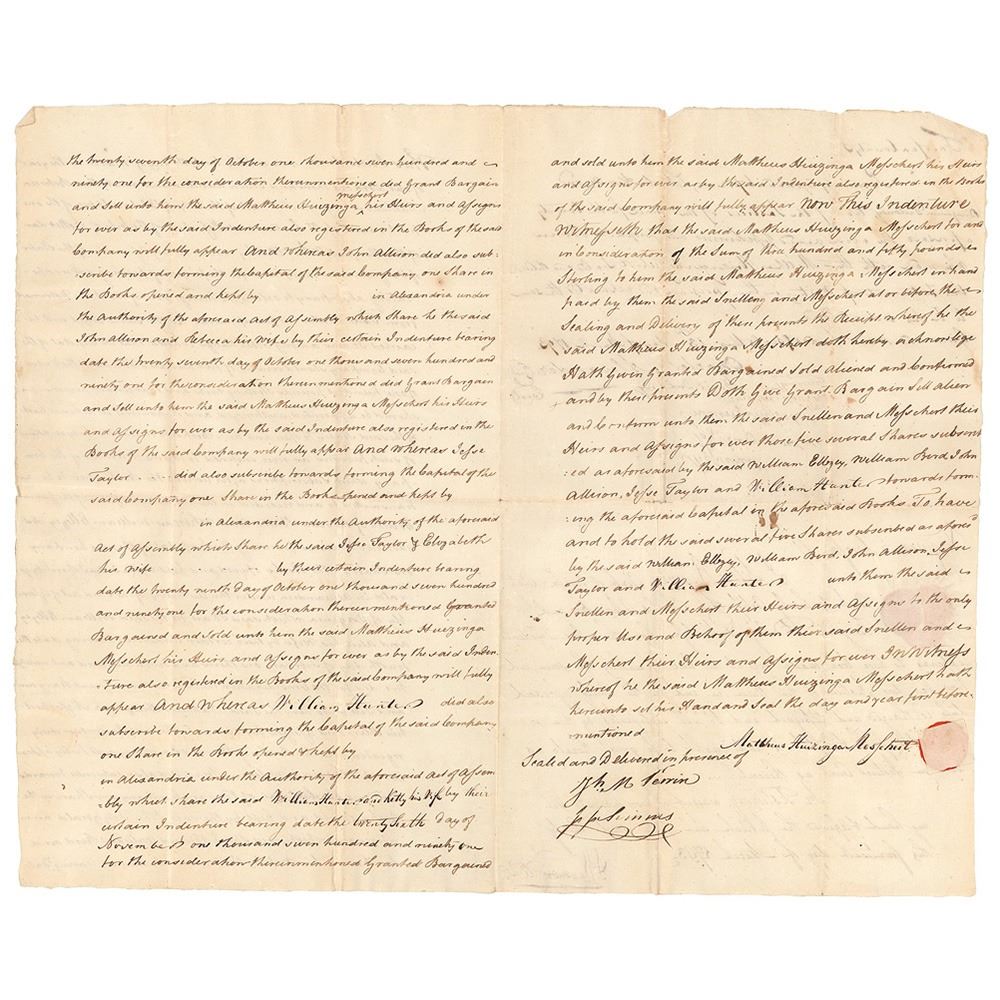 the twenty seventh day of October one thousand seven hundred and
ninety one for the consideration thereinmentioned did Grant Bargain
messchert
and sell unto him the said Mattheus Huizinga his Heirs and Assigns
for ever as by the said Indenture also registered in the Books of the said
Company will fully appear And whereas John Allison did also sub:
scribe towards forming the Capital of the said Company one Share in
the Books opened and kept by in Alexandria under
the Authority of the aforesaid Act of Assembly which Share he the said
John Allison and Rebecca his wife by their certain Indenture bearing
date the twenty seventh day of October one thousand seven hundred and
ninety one for the consideration thereinmentioned did Grant Bargain
and sell unto him the said Matthew Huizinga Messchert his Heirs
and Assigns for ever as by the said Indenture also registered in the
Books of the said Company will fully appear And whereas Jesse
Taylor did also subscribe towards forming the Capital of the
said Company one Share in the Books opened and kept by
in Alexandria under the Authority of the aforesaid
Act of Assembly which Share he the said Jesse Taylor & Elizabeth
his wife by their certain Indenture bearing
date the twenty ninth Day of October one thousand seven hundred
and ninety one for the consideration thereinmentioned Granted
Bargained and Sold unto him the said Matthew Huizinga
Messchert his Heirs and Assigns for ever as by the said Inden
:ture also registered in the Books of the said Company will fully
appear And whereas William Hunter did also
subscribe towards forming the Capital of the said Company
one Share in the Books opened & kept by
in Alexandria under the Authority of the aforesaid Act of Assem
:bly which share the said William Hunter and Kitty his Wife by their
certain Indenture bearing date the twenty sixth day of
November one thousand seven hundred and ninety one
for the consideration thereinmentioned Granted Bargained
and sold unto him the said Matthew Huizinga Messchert his Heirs
and Assigns for ever as by the said Indenture also registered in the Books
of the said Company will fully appear Now This Indenture
Witnesseth that the said Matthew Huizinga Messchert for and
in Consideration of the Sum of three hundred and fifty pounds
Sterling to him the said Matthew Huizinga Messchert in hand
paid by them the said Snellen and Messchert at or before the
Sealing and Delivery of these presents the Receipt whereof he the
said Matthew Huizinga Messchert doth hereby acknowlege
Hath Given Granted Bargained Sold Aliened and Confirmed
and by these presents Doth Give Grant Bargain Sell alien
and Confirm unto them the said Snellen and Messchert their
Heirs and Assigns for ever those five several Shares subscrib
:ed as aforesaid by the said William Ellzey, William Berd, John
Allison, Jesse Taylor and William Hunter towards form
:ing the aforesaid Capital in the aforesaid Books To have
and to hold the said several five Shares subscribed as afores
by the said William Ellzey, William Bird, John Allison, Jesse
Taylor and William Hunter unto them the said
Snellen and Messchert their Heirs and Assigns to the only
proper Use and Behoof of them their said Snellen and
Messchert their Heirs and Assigns for ever In Witness
whereof he the said Matthew Huizinga Messchert hath
hereunto set his Hand and Seal the day and year first before
mentioned
Mattheus Huizinga Messchert
Sealed and Delivered in presence of